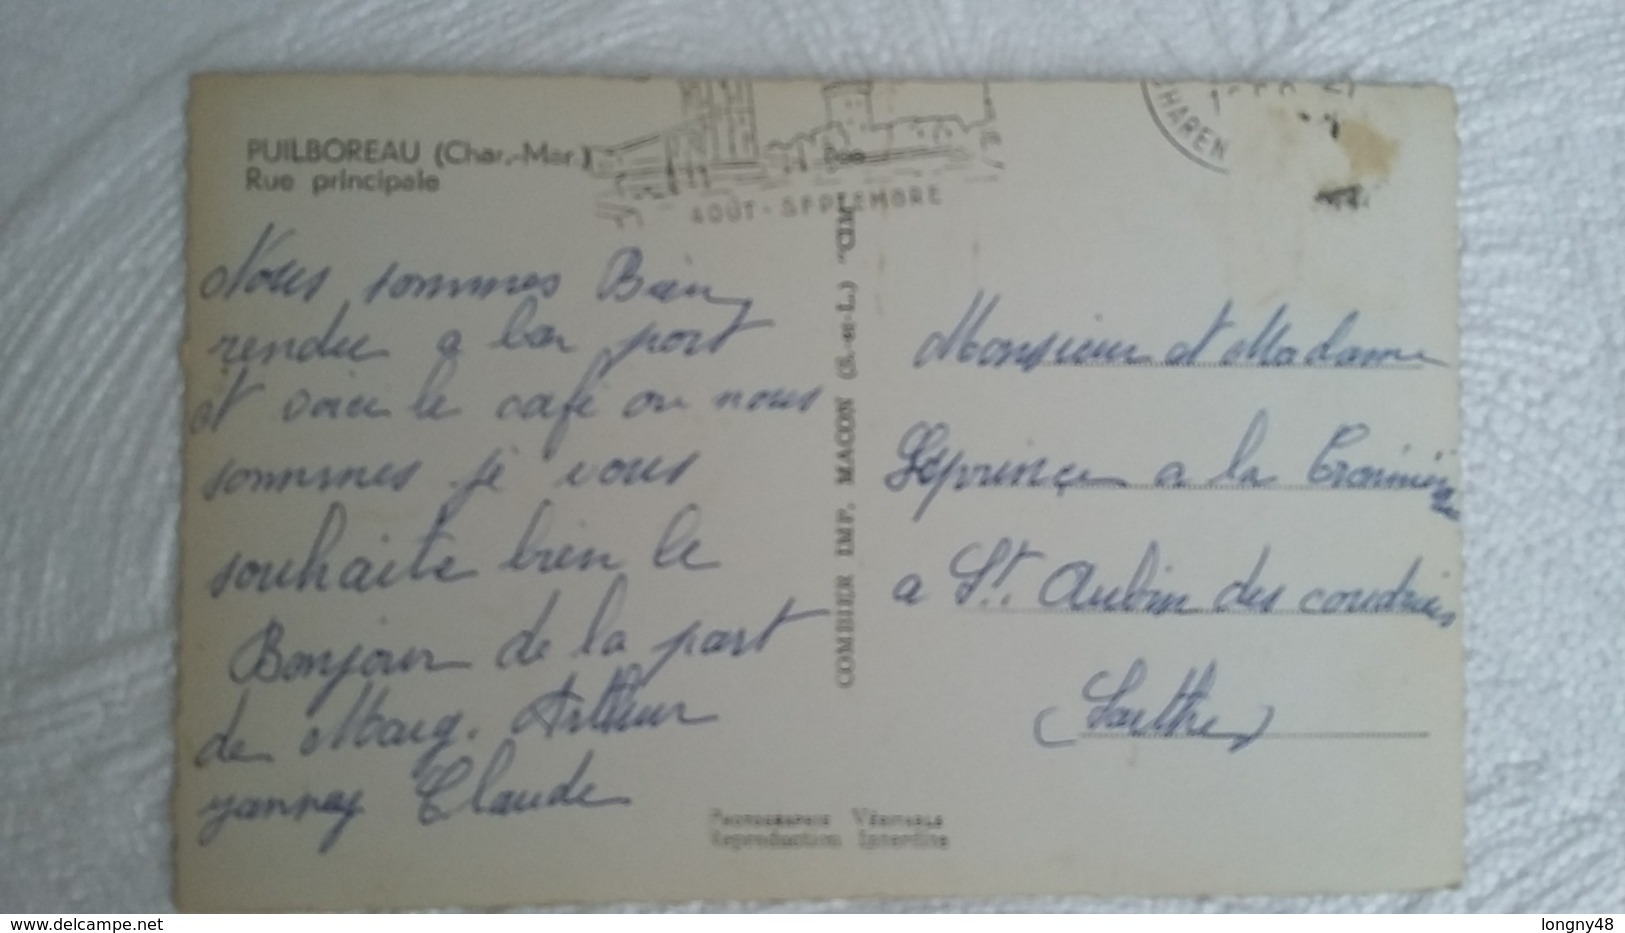 PUILBOREAU (Char.-Mar.)
Rue principale
AOÛT - SEPTEMBRE
CHAREN
Nous sommes Bien
rendu a bon port
et voici le café ou nous
sommes je vous
souhaite bien le
Bonjour de la part
de Marg. Arthur
yanney Claude
COMBIER IMP. MACON (S.-et-L.) "CIM"
Monsieur et Madame
Leprince a la
a St. Aubin des coudriers
(Sarthe)
PHOTOGRAPHIE VÉRITABLE
Reproduction Interdite
delcampe.net
longny48